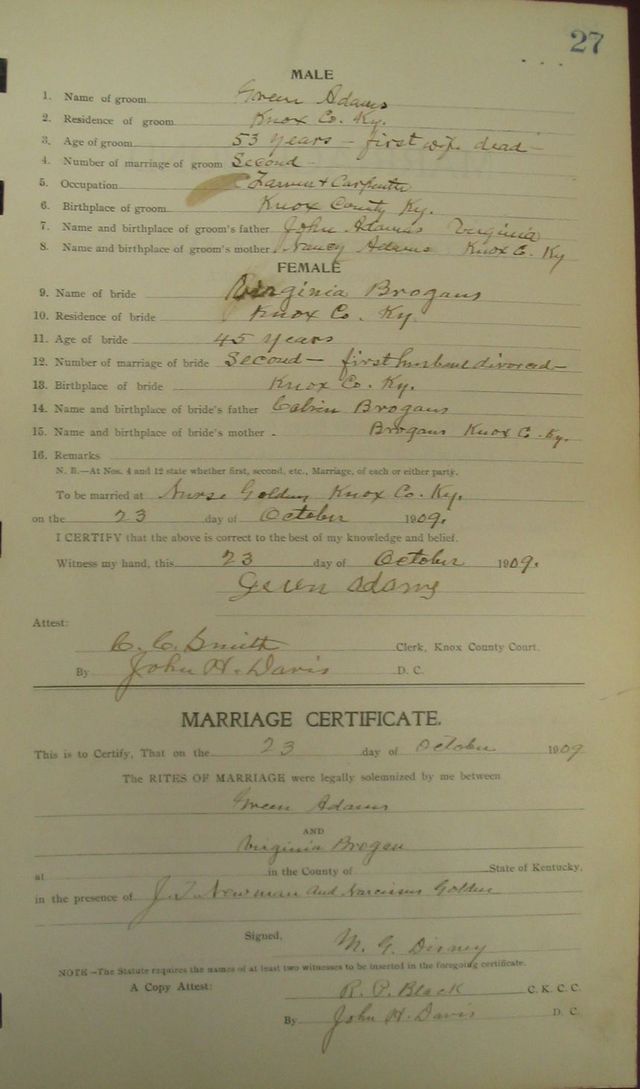 27
MALE
1. Name of groom Green Adams
2. Residence of groom Knox Co. Ky.
3. Age of groom 53 years – first wife dead –
4. Number of marriage of groom Second –
5. Occupation Farmer + Carpenter
6. Birthplace of groom Knox County Ky.
7. Name and birthplace of groom's father John Adams Virginia
8. Name and birthplace of groom's mother Nancy Adams Knox C. Ky
FEMALE
9. Name of bride Virginia Brogans
10. Residence of bride Knox Co. Ky.
11. Age of bride 45 years
12. Number of marriage of bride Second – first husband divorced –
13. Birthplace of bride Knox Co. Ky.
14. Name and birthplace of bride's father Calvin Brogans
15. Name and birthplace of bride's mother . Brogans Knox C. Ky.
16. Remarks
N. B.—At Nos. 4 and 12 state whether first, second, etc., Marriage, of each or either party.
To be married at Golden Knox Co. Ky.
on the 23 day of October 1909.
I CERTIFY that the above is correct to the best of my knowledge and belief.
Witness my hand, this 23 day of October 1909.
Green Adams
Attest:
C. C. Smith Clerk, Knox County Court.
By John H. Davis D. C.
MARRIAGE CERTIFICATE.
This is to Certify, That on the 23 day of October 1909
The RITES OF MARRIAGE were legally solemnized by me between
Green Adams
AND
Virginia Brogan
at in the County of State of Kentucky,
in the presence of J. T. Newman and Narcissus Golden
Signed, M. G. Disney
NOTE—The Statute requires the names of at least two witnesses to be inserted in the foregoing certificate.
A Copy Attest: R. P. Black C. K. C. C.
By John H. Davis D. C.